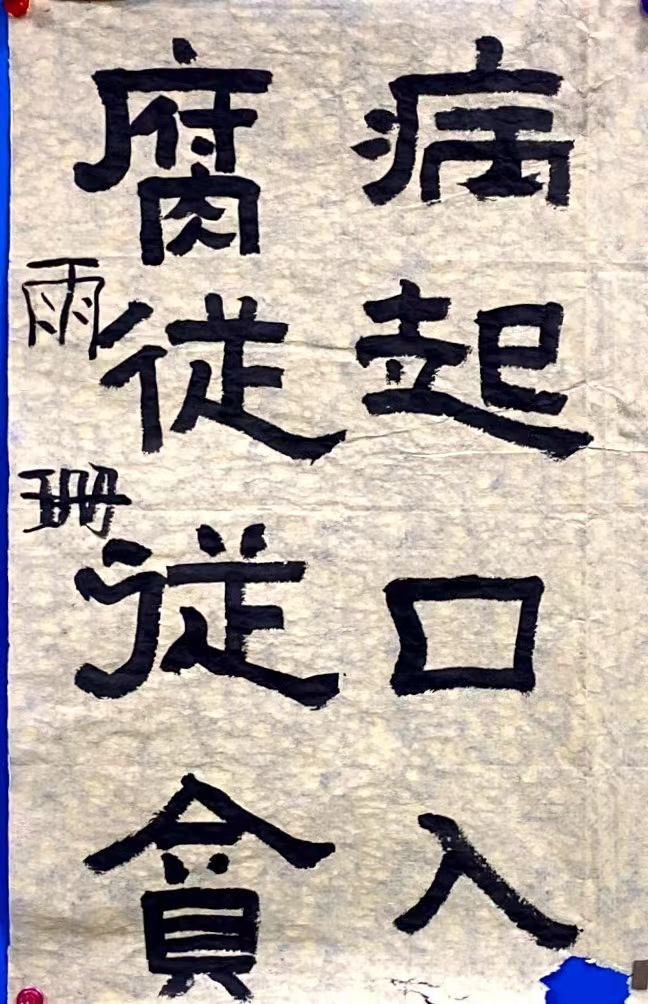 病起口入
腐従従貪
雨珊